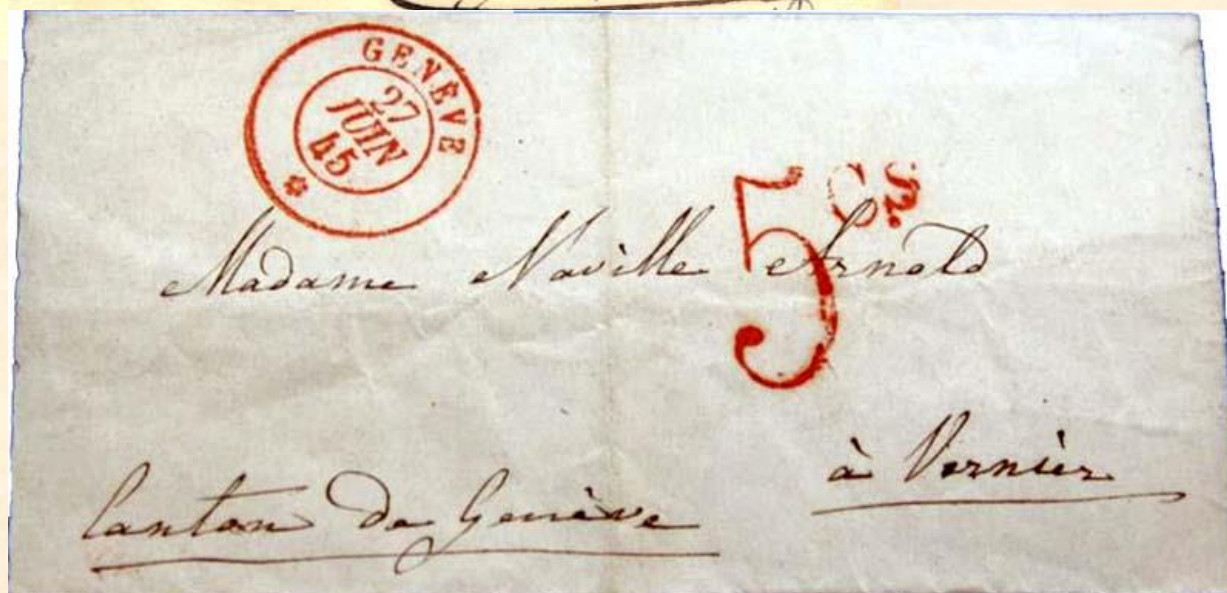 GENÈVE
27
JUIN
45
5 Cs.
Madame Naville Arnold
à Vernier
Canton de Genève